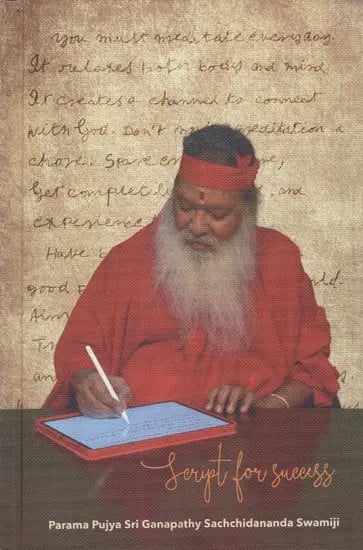 you must meditate everyday.
It relaxes both body and mind.
It creates a channel to connect
with God. Don't meditation a
chore.
Get complete and
experience
Have
good
an
Script for success
Parama Pujya Sri Ganapathy Sachchidananda Swamiji